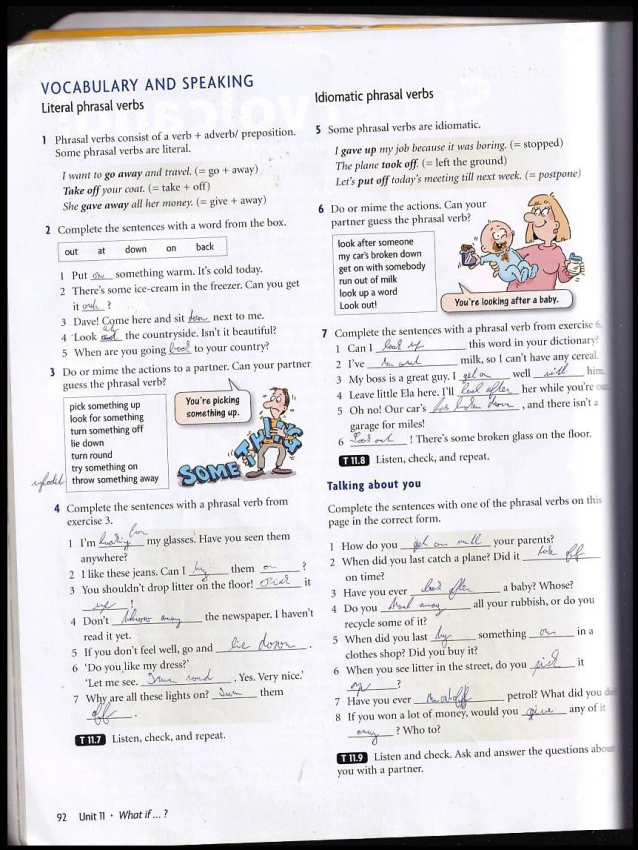 VOCABULARY AND SPEAKING
Literal phrasal verbs
1 Phrasal verbs consist of a verb + adverb/ preposition.
Some phrasal verbs are literal.
I want to go away and travel. (= go + away)
Take off your coat. (= take + off)
She gave away all her money. (= give + away)
2 Complete the sentences with a word from the box.
out at down on back
1 Put on something warm. It's cold today.
2 There's some ice-cream in the freezer. Can you get
it out ?
3 Dave! Come here and sit down next to me.
4 Look at the countryside. Isn't it beautiful?
5 When are you going back to your country?
3 Do or mime the actions to a partner. Can your partner
guess the phrasal verb?
pick something up
look for something
turn something off
lie down
turn round
try something on
throw something away
You're picking
something up.
SOMETHING
4 Complete the sentences with a phrasal verb from
exercise 3.
1 I'm looking for my glasses. Have you seen them
anywhere?
2 I like these jeans. Can I try them on ?
3 You shouldn't drop litter on the floor! Pick it
up !
4 Don't throw away the newspaper. I haven't
read it yet.
5 If you don't feel well, go and lie down .
6 'Do you like my dress?'
'Let me see. Turn round . Yes. Very nice.'
7 Why are all these lights on? Turn them
off .
T 11.7 Listen, check, and repeat.
Idiomatic phrasal verbs
5 Some phrasal verbs are idiomatic.
I gave up my job because it was boring. (= stopped)
The plane took off. (= left the ground)
Let's put off today's meeting till next week. (= postpone)
6 Do or mime the actions. Can your
partner guess the phrasal verb?
look after someone
my car's broken down
get on with somebody
run out of milk
look up a word
Look out!
You're looking after a baby.
7 Complete the sentences with a phrasal verb from exercise 6.
1 Can I look up this word in your dictionary?
2 I've milk, so I can't have any cereal.
3 My boss is a great guy. I get on well with him.
4 Leave little Ela here. I'll look after her while you're out
5 Oh no! Our car's has broken down , and there isn't a
garage for miles!
6 Look out ! There's some broken glass on the floor.
T 11.8 Listen, check, and repeat.
Talking about you
Complete the sentences with one of the phrasal verbs on this
page in the correct form.
1 How do you get on with your parents?
2 When did you last catch a plane? Did it take off
on time?
3 Have you ever look after a baby? Whose?
4 Do you away all your rubbish, or do you
recycle some of it?
5 When did you last try something on in a
clothes shop? Did you buy it?
6 When you see litter in the street, do you pick it
up ?
7 Have you ever petrol? What did you
8 If you won a lot of money, would you give any of it
away ? Who to?
T 11.9 Listen and check. Ask and answer the questions about
you with a partner.
92 Unit 11 • What if ... ?